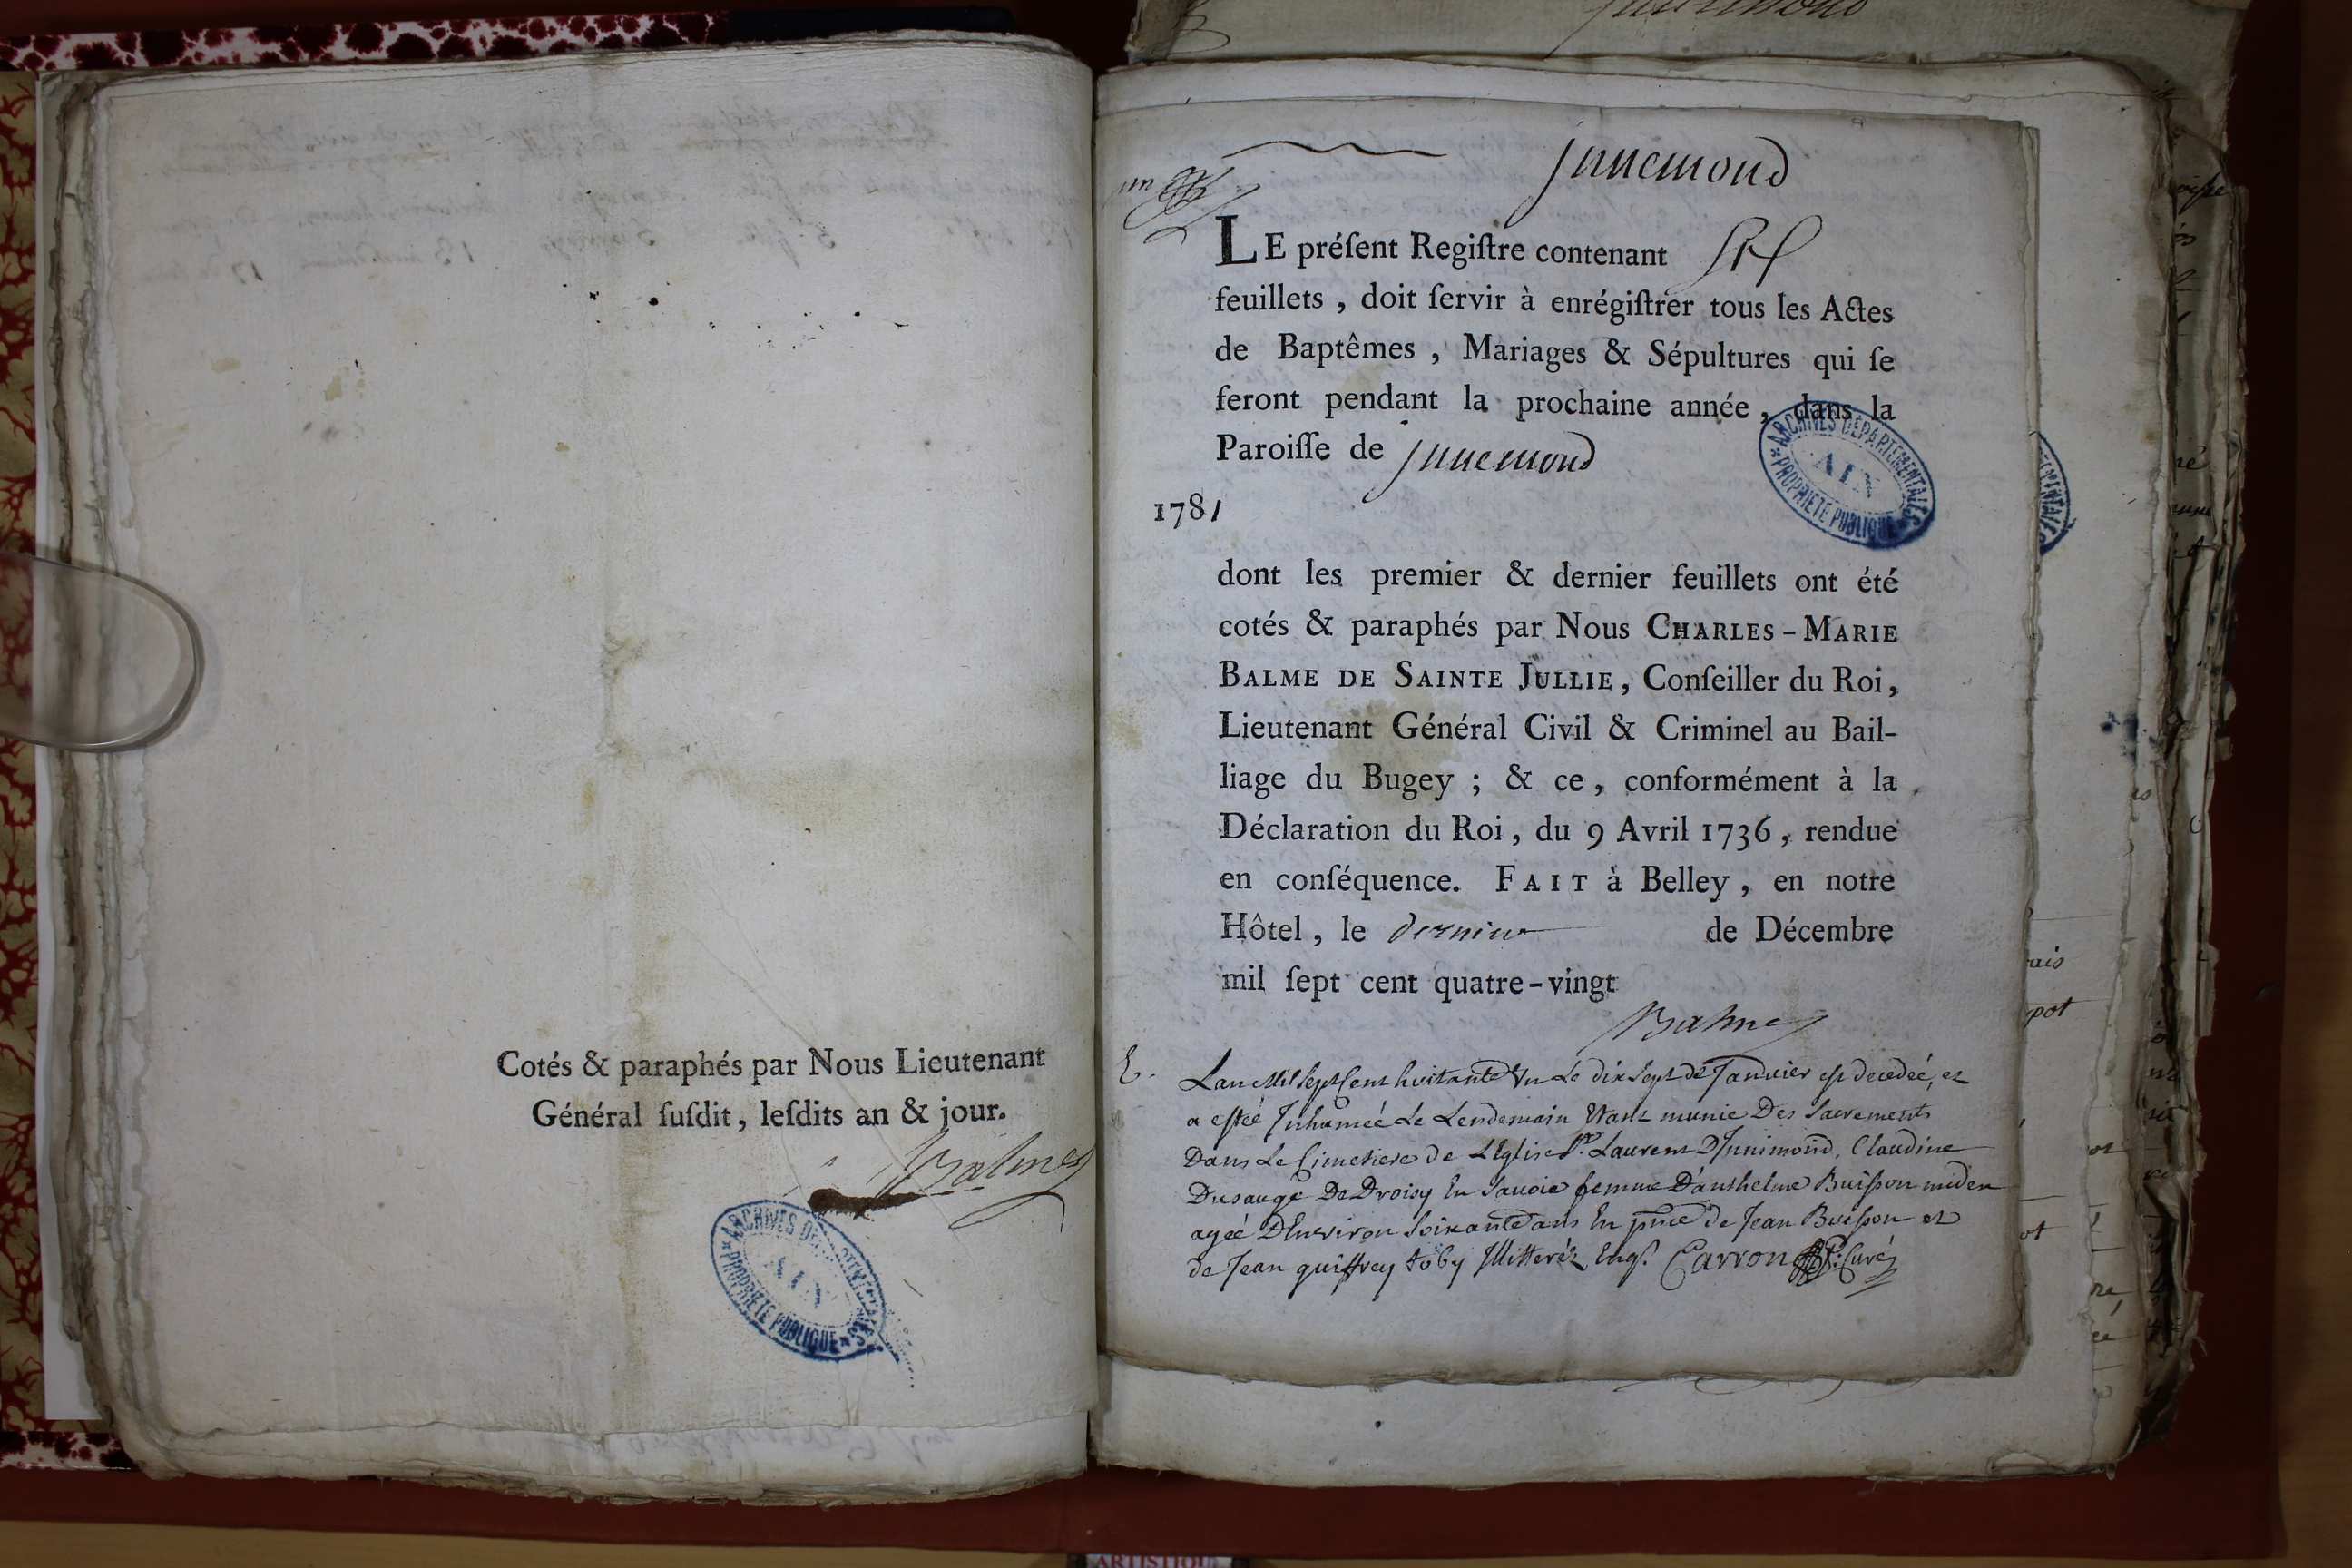 Cotés & paraphés par Nous Lieutenant
Général ſuſdit, leſdits an & jour.
Balme
ARCHIVES DÉPARTEMENTALES
AIN
PROPRIÉTÉ PUBLIQUE
Junemond
LE préſent Regiſtre contenant Six
feuillets, doit ſervir à enrégiſtrer tous les Actes
de Baptêmes, Mariages & Sépultures qui ſe
feront pendant la prochaine année, dans la
Paroiſſe de Junemond
ARCHIVES DÉPARTEMENTALES
AIN
PROPRIÉTÉ PUBLIQUE
1781
dont les premier & dernier feuillets ont été
cotés & paraphés par Nous CHARLES-MARIE
BALME DE SAINTE JULLIE, Conſeiller du Roi,
Lieutenant Général Civil & Criminel au Bail-
liage du Bugey ; & ce, conformément à la
Déclaration du Roi, du 9 Avril 1736, rendue
en conſéquence. FAIT à Belley, en notre
Hôtel, le dernier de Décembre
mil ſept cent quatre-vingt
Balme
Lan Mil Sept Cent huitante Vn Le dix Sept de Janvier est decedeé, et
a esteé Inhumeé Le Lendemain Etant munie Des Sacrements
Dans Le Cimetiere de L'Eglise St. Laurent D'Junimond, Claudine
Dusauge De Droisy En Savoie femme D'anthelme Buisson
ageé D'Environ Soixante ans En pnce de Jean Buisson et
de Jean guiffrey Illitteréz Enqs. Carron Curé